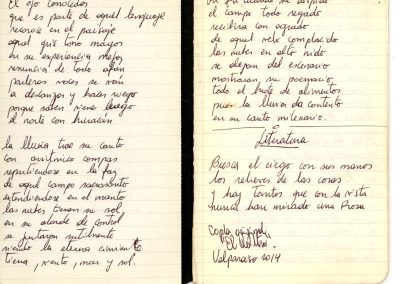 El ojo conocedor
que es parte de aquel lenguaje
recorre en el paisaje
aquel que tono mayor
en su experiencia mejor
renuncia de todo afán
a descansar y hacer fuego
porque saben viene luego
el norte con huracán
la lluvia trae su canto
con arrítmico compas
repartiendose en la faz
de aquel campo sacrosanto
extendiendose en el manto
las nubes tienen su rol
en su alarde de control
se juntaron sutilmente
siendo la eterna simiente
tierra, viento, mar y sol.
el campo todo regado
recibiria con agrado
de aquel reto complacido
las nubes en alto nido
se alejan del escenario
mostraran su poemario
todo el brote de alimentos
pues la lluvia da contento
en su canto milenario.
Literatura
Busca el ciego con sus manos
los relieves de las cosas
y hay tantos que con la vista
nunca han mirado una Prosa
Copla original
Valparaiso 2014